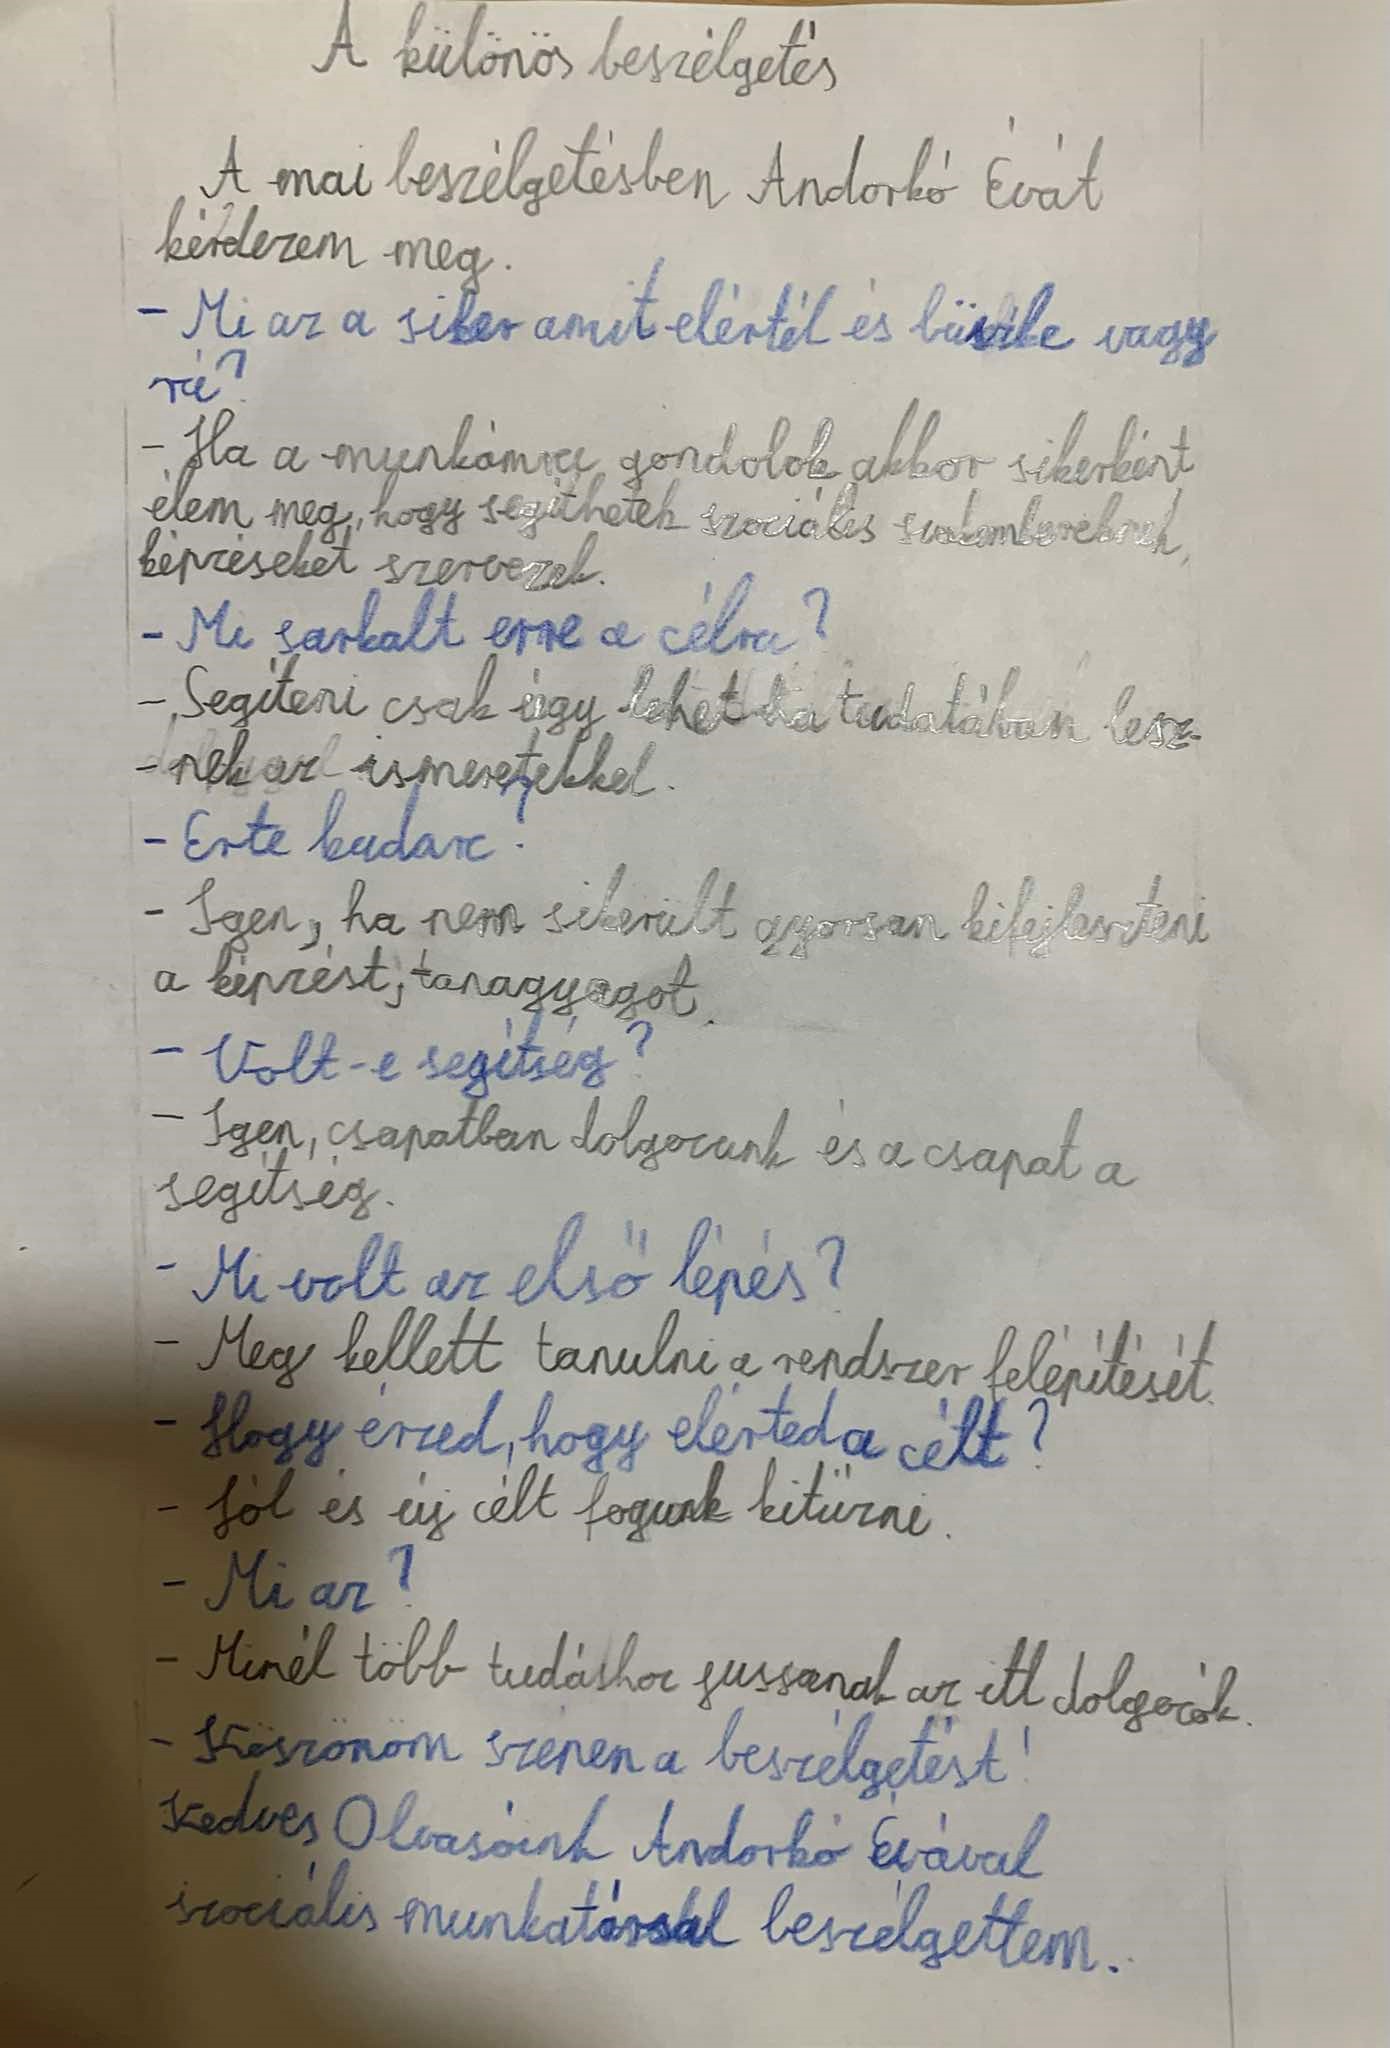 A különös beszélgetés
A mai beszélgetésben Andorkó Évát
kérdezem meg.
- Mi az a siker amit elértél és büszke vagy
rá?
- Ha a munkámra gondolok akkor sikerként
élem meg, hogy segíthetek szociális szakembereknek,
képzéseket szervezek.
- Mi sarkalt erre a célra?
- Segíteni csak úgy lehet ha tudatában lesz-
- nek az ismeretekkel.
- Ért e kudarc?
- Igen, ha nem sikerült gyorsan kifejleszteni
a képzést, tanagyagot.
- Volt-e segítség?
- Igen, csapatban dolgozunk és a csapat a
segítség.
- Mi volt az első lépés?
- Meg kellett tanulni a rendszer felépítését.
- Hogy érzed, hogy elérted a célt?
- Jól és új célt fogunk kitűzni.
- Mi az?
- Minél több tudáshoz jussanak az itt dolgozók.
- Köszönöm szépen a beszélgetést!
Kedves Olvasóink Andorkó Évával
szociális munkatárssal beszélgettem.